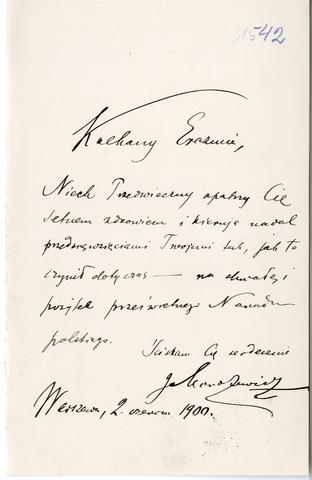 1542
Kochany Erazmie,
Niech Przedwieczny opatrzy Cię
setnem zdrowiem i kieruje nadal
przedsięwzięciami Twojemi tak, jak to
czynił dotychczas — na chwałę i
pożytek prześwietnego Narodu
polskiego.
Ściskam Cię serdecznie
Warszawa, 2. czerwca 1900.